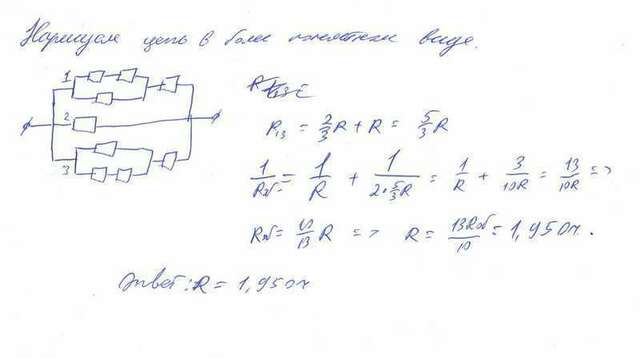 Нарисуем цепь в более понятном виде.
1
2
3
R₁₃ = 2/3 R + R = 5/3 R
1/Rоб = 1/R + 1/(2·5/3 R) = 1/R + 3/10R = 13/10R =>
Rоб = 10/13 R => R = 13Rоб/10 = 1,95 Ом.
Ответ: R = 1,95 Ом